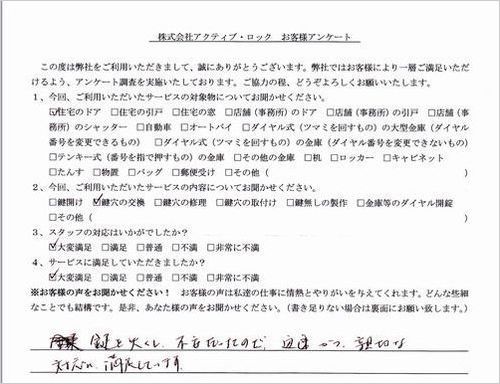 株式会社アクティブ・ロック　お客様アンケート
この度は弊社をご利用いただきまして、誠にありがとうございます。弊社ではお客様により一層ご満足いただけ
るよう、アンケート調査を実施いたしております。ご協力の程、どうぞよろしくお願いいたします。
1、今回、ご利用いただいたサービスの対象物についてお聞かせください。
☑住宅のドア　□住宅の引戸　□住宅の窓　□店舗（事務所）のドア　□店舗（事務所）の引戸　□店舗（事
務所）のシャッター　□自動車　□オートバイ　□ダイヤル式（ツマミを回すもの）の大型金庫（ダイヤル
番号を変更できるもの）　□ダイヤル式（ツマミを回すもの）の金庫（ダイヤル番号を変更できないもの）
□テンキー式（番号を指で押すもの）の金庫　□その他の金庫　□机　□ロッカー　□キャビネット
□たんす　□物置　□バッグ　□郵便受け　□その他（　　　　　　　　　　）
2、今回、ご利用いただいたサービスの内容についてお聞かせください。
□鍵開け　☑鍵穴の交換　□鍵穴の修理　□鍵穴の取付け　□鍵無しの製作　□金庫等のダイヤル開錠
□その他（　　　　　　　　　　）
3、スタッフの対応はいかがでしたか？
☑大変満足　□満足　□普通　□不満　□非常に不満
4、サービスに満足していただきましたか？
☑大変満足　□満足　□普通　□不満　□非常に不満
※お客様の声をお聞かせください！　お客様の声は私達の仕事に情熱とやりがいを与えてくれます。どんな些細
なことでも結構です。是非、あなた様の声をお聞かせください。（書き足りない場合は裏面にお願い致します。）
鍵を失くし、不安だったので 迅速かつ、親切な
対応に満足しています。